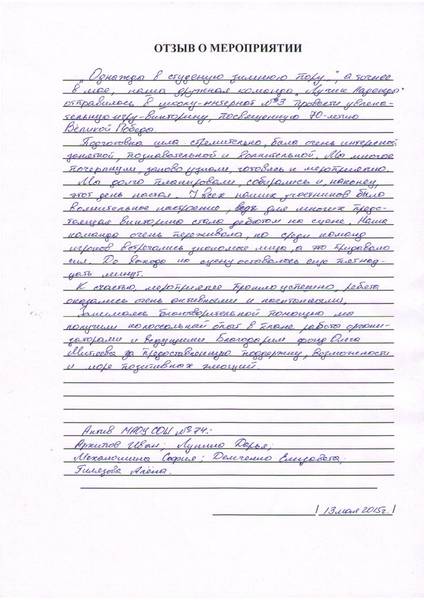 ОТЗЫВ О МЕРОПРИЯТИИ
"Однажды в студеную зимнюю пору", а точнее
в мае, наша дружная команда "Лучики Надежды"
отправилась в школу-интернат №3 провести увлека-
тельную игру-викторину, посвященную 70-летию
Великой Победы.
Подготовка шла стремительно, была очень интересной
занятной, познавательной и волнительной. Мы многое
почерпнули, заново узнали, готовясь к мероприятию.
Мы долго планировали, собирались и наконец,
этот день настал. У всех наших участников было
волнительное настроение, ведь для многих предс-
тоящая викторина стала дебютом на сцене. Наша
команда очень переживала, но среди команд
игроков встречались знакомые лица, а это придавало
сил. До выхода на сцену оставалось еще пятнад-
цать минут.
К счастью, мероприятие прошло успешно, ребята
оказались очень активными и воспитанными.
Занимаясь благотворительной помощью мы
получили колоссальный опыт в плане работы органи-
заторами и ведущими. Благодарим фонд Олега
Митяева за предоставленную поддержку, возможности
и море позитивных эмоций.
Актив МАОУ СОШ №74:
Архипов Иван; Лупина Дарья;
Механошина София; Демченко Елизавета;
Гилязова Алена.
/ 13 мая 2015г. /